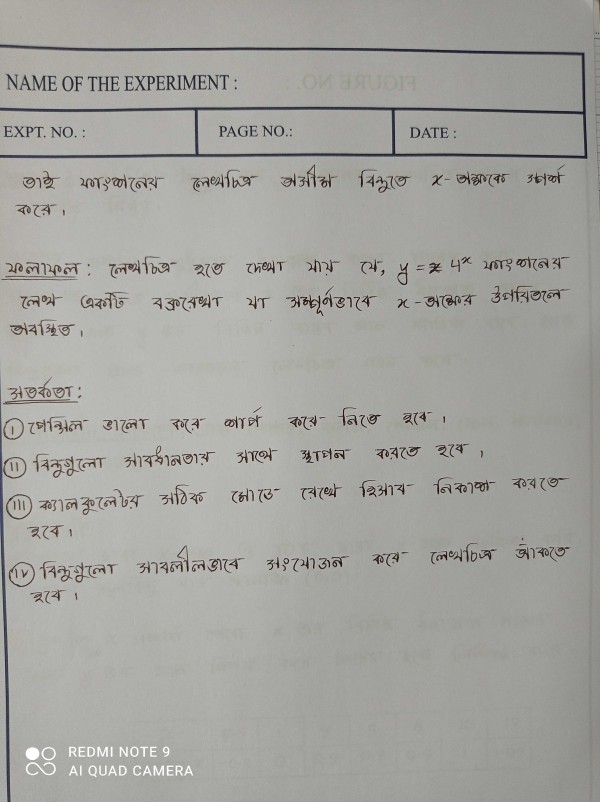 NAME OF THE EXPERIMENT :
EXPT. NO. :
PAGE NO.:
DATE :
তাই ফাংশনের লেখচিত্র অসীম বিন্দুতে x-অক্ষকে স্পর্শ
করে।
ফলাফল : লেখচিত্র হতে দেখা যায় যে, y = 4ˣ ফাংশনের
লেখ একটি বক্ররেখা যা সম্পূর্ণভাবে x-অক্ষের উপরিতলে
অবস্থিত।
সতর্কতা :
i পেন্সিল ভালো করে শার্প করে নিতে হবে।
ii বিন্দুগুলো সাবধানতার সাথে স্থাপন করতে হবে।
iii ক্যালকুলেটর সঠিক মোডে রেখে হিসাব নিকাশ করতে
হবে।
iv বিন্দুগুলো সাবলীলভাবে সংযোজন করে লেখচিত্র আঁকতে
হবে।
REDMI NOTE 9
AI QUAD CAMERA